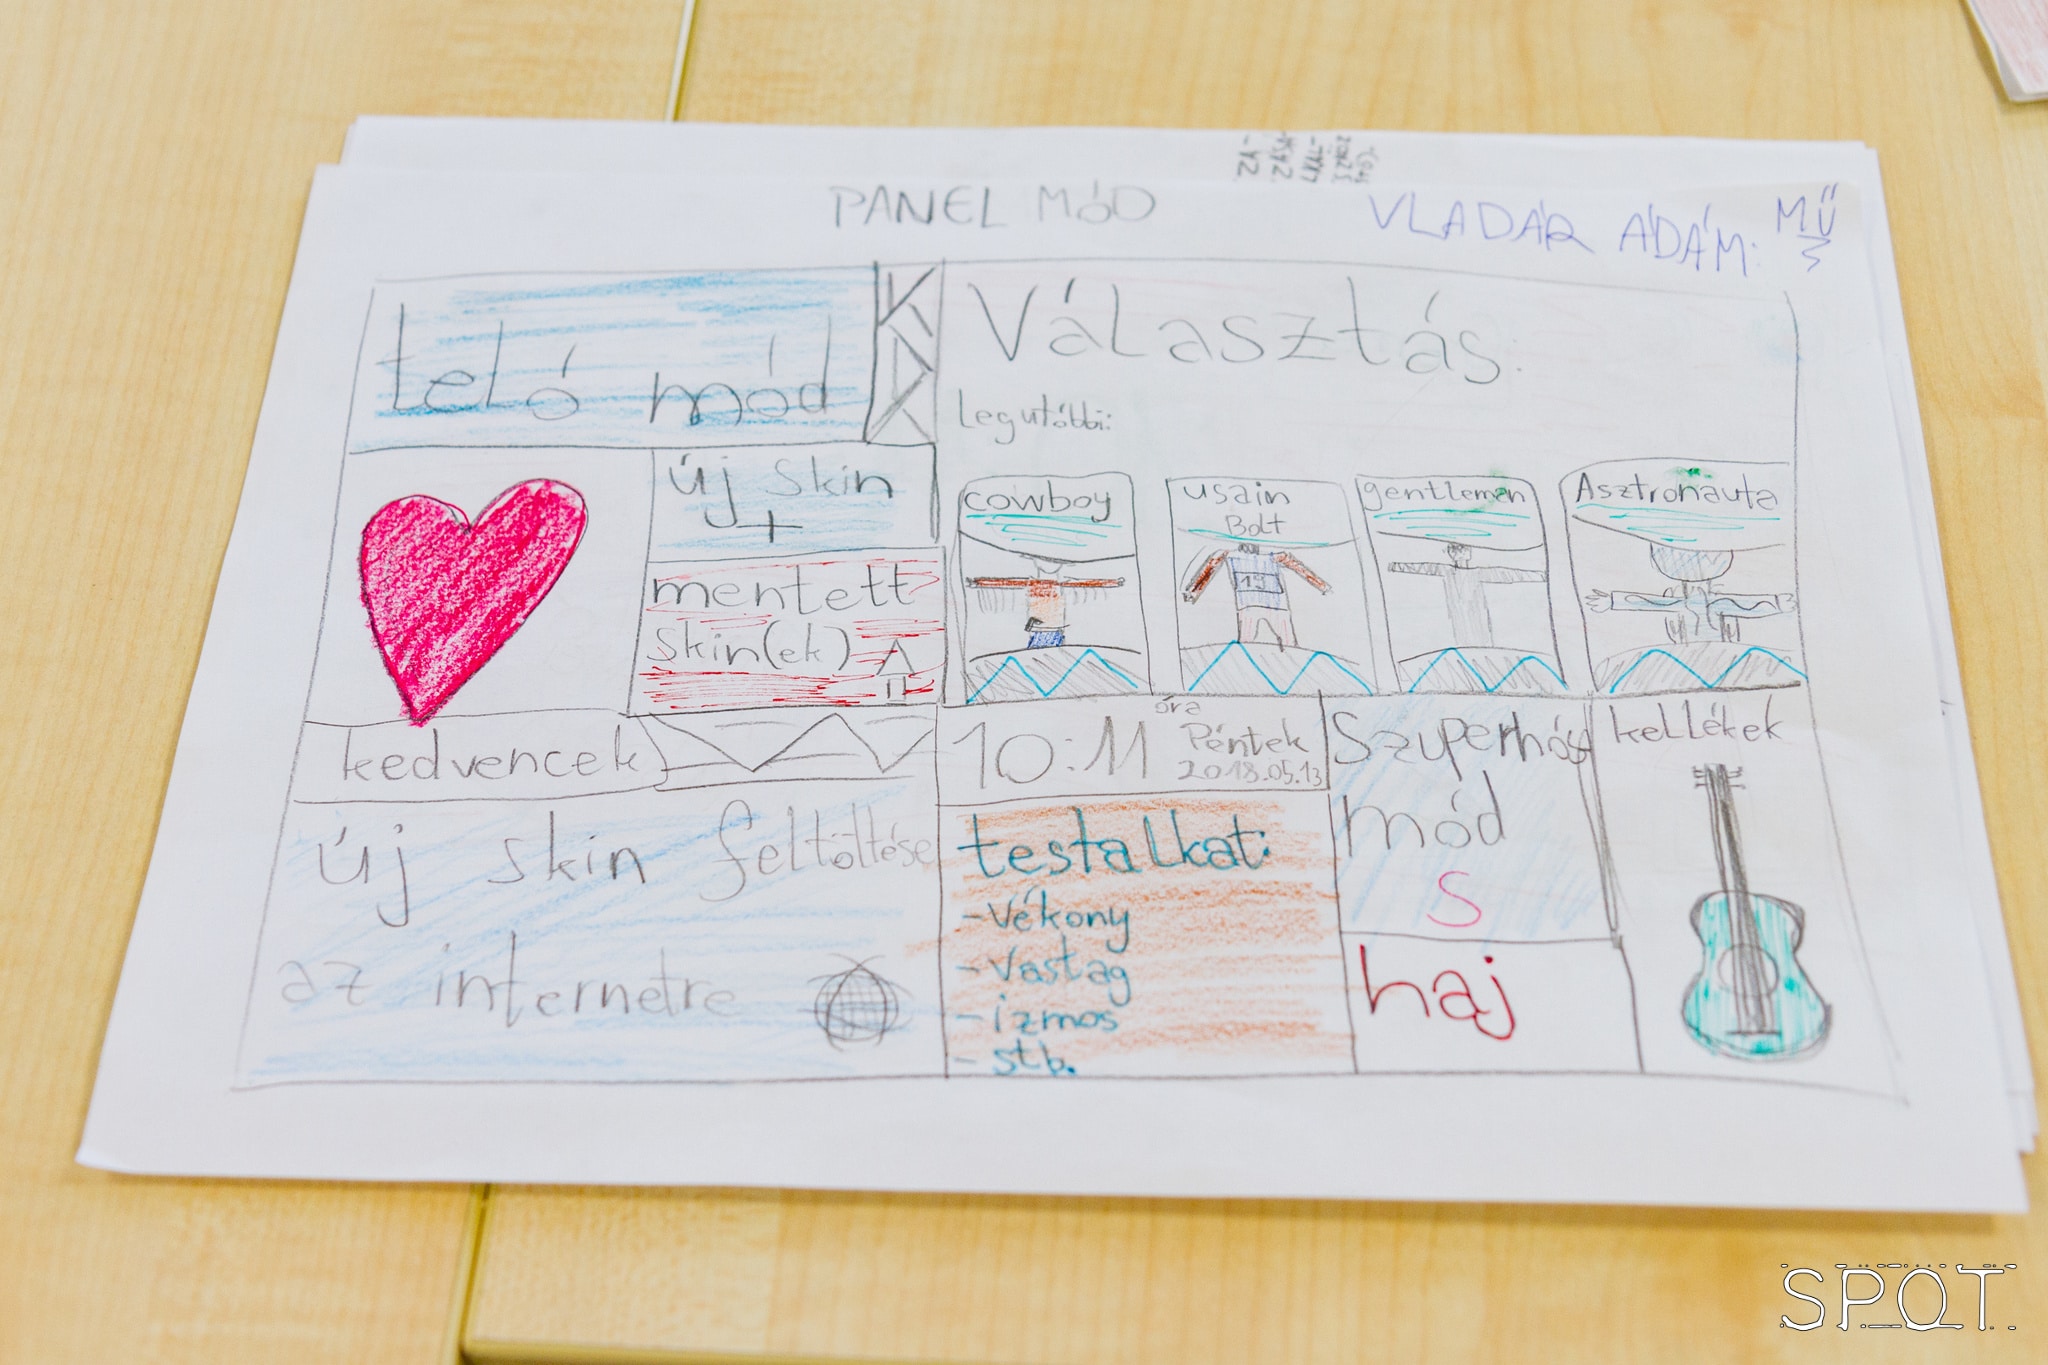 PANEL MÓD
VLADÁR ÁDÁM:
MŰ
teló mód
Választás.
Legutóbbi:
új skin
+
cowboy
usain
Bolt
gentleman
Asztronauta
13
mentett
skin(ek)
kedvencek
10:11
óra
Péntek
2018.05.13
Szuperhős
mód
S
kellékek
új skin feltöltése
az internetre
testalkat:
- Vékony
- Vastag
- izmos
- stb.
haj
SPOT